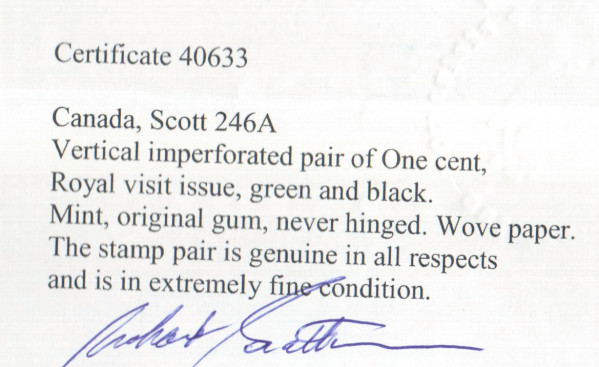 Certificate 40633
Canada, Scott 246A
Vertical imperforated pair of One cent,
Royal visit issue, green and black.
Mint, original gum, never hinged. Wove paper.
The stamp pair is genuine in all respects
and is in extremely fine condition.